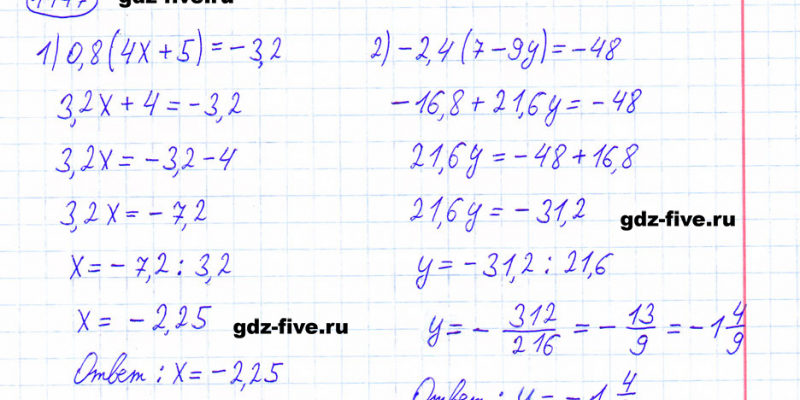 1147 gdz-five.ru
1) 0,8(4x+5)=-3,2
3,2x+4=-3,2
3,2x=-3,2-4
3,2x=-7,2
x=-7,2:3,2
x=-2,25
gdz-five.ru
Ответ: x=-2,25
2) -2,4(7-9y)=-48
-16,8+21,6y=-48
21,6y=-48+16,8
21,6y=-31,2
gdz-five.ru
y=-31,2:21,6
y=-312/216=-13/9=-1 4/9
Ответ: y=-1 4